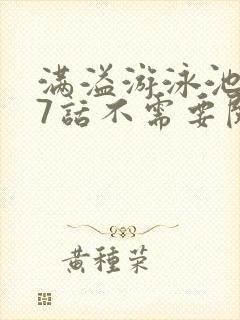 满溢游泳池
7話不需要
黄種荣